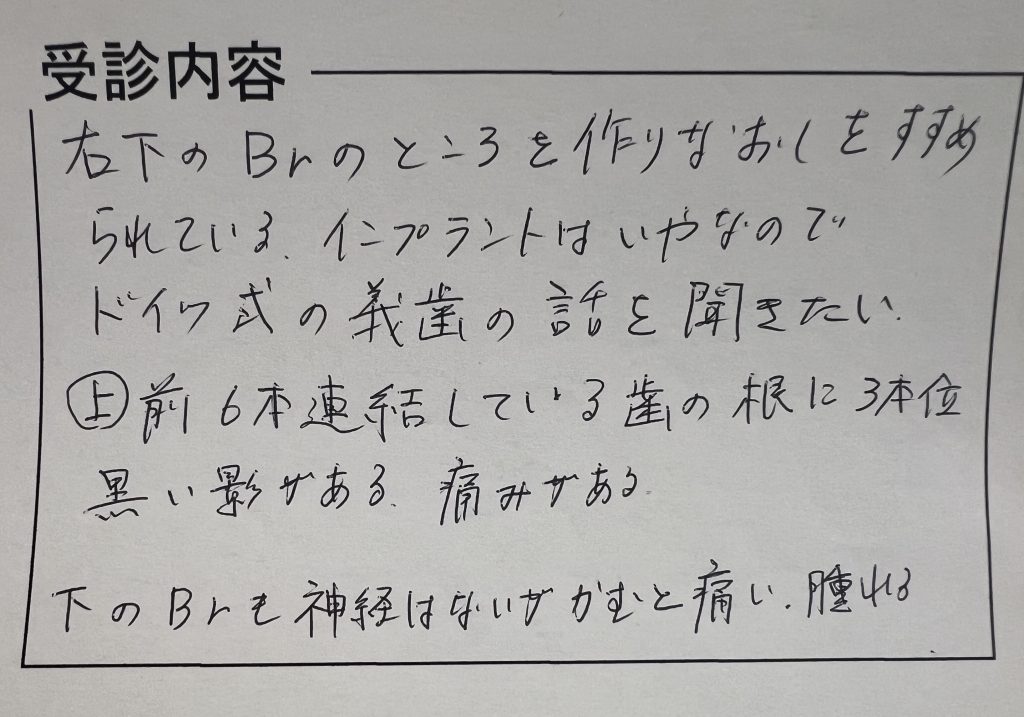 受診内容
右下のBrのところを作りなおしをすすめ
られている、インプラントはいやなので
ドイツ式の義歯の話を聞きたい.
㊤前6本連結している歯の根に3本位
黒い影がある、痛みがある.
下のBrも神経はないがかむと痛い、腫れる